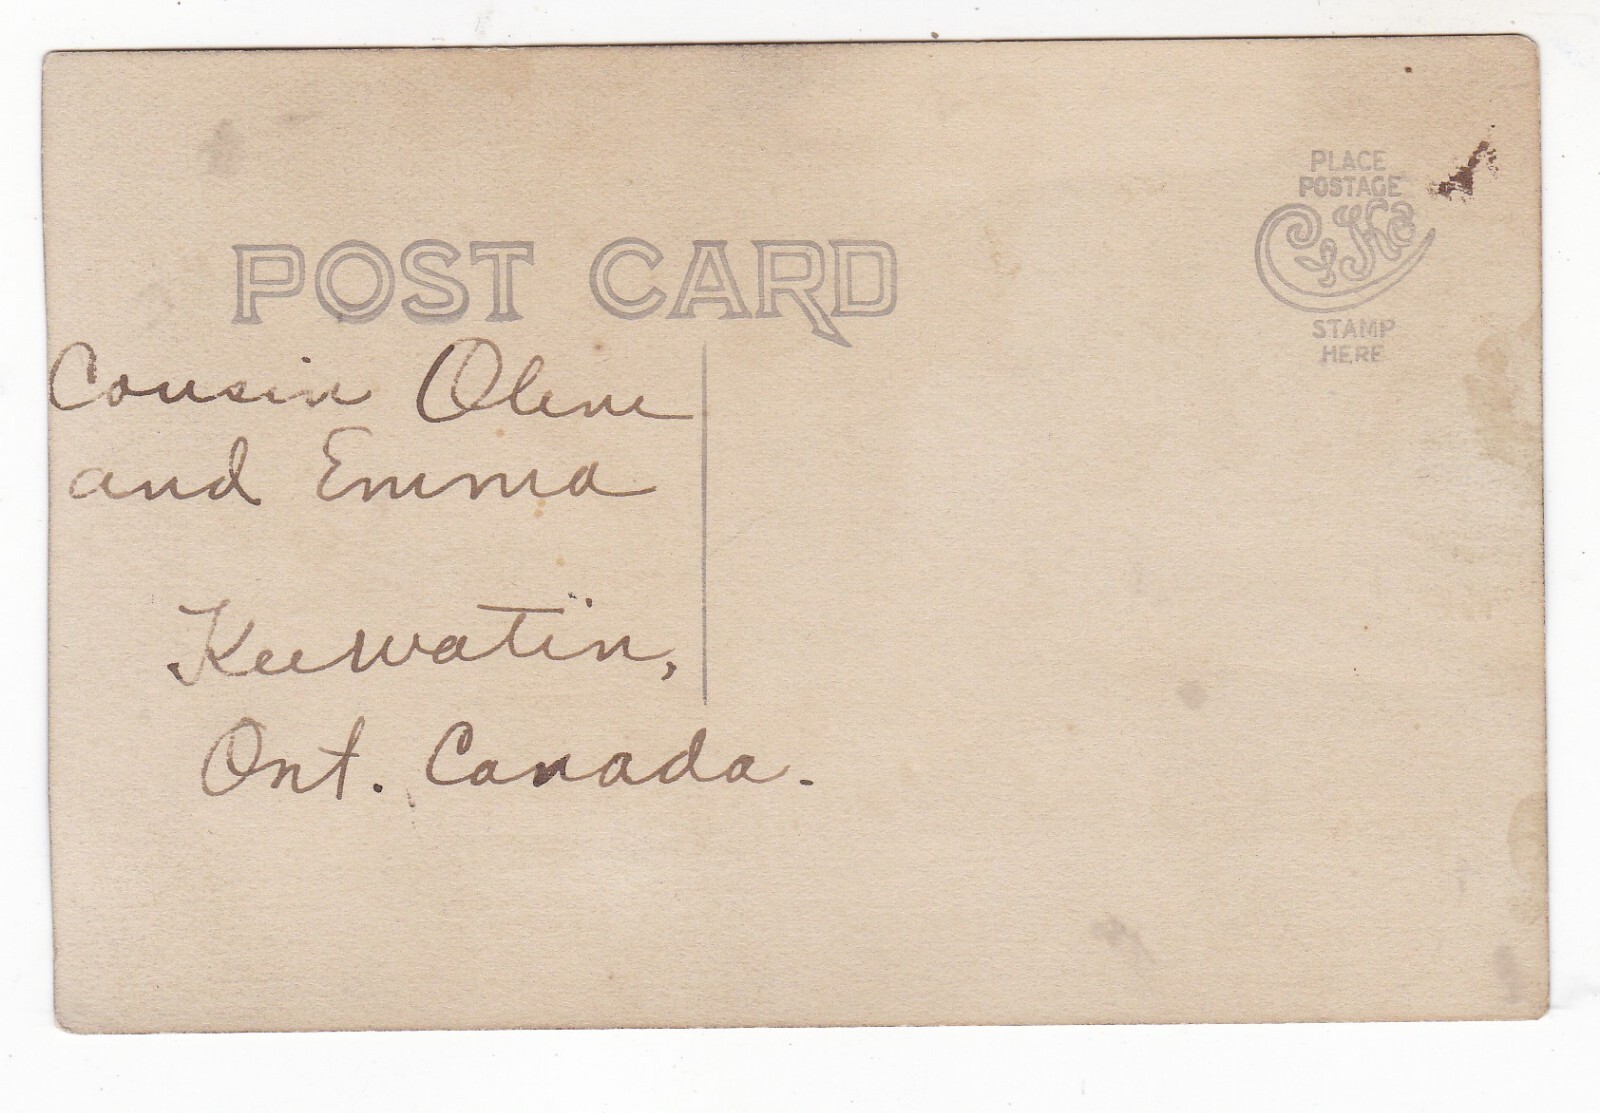 PLACE
POSTAGE
CyKo
STAMP
HERE
POST CARD
Cousin Olene
and Emma
Keewatin,
Ont. Canada.